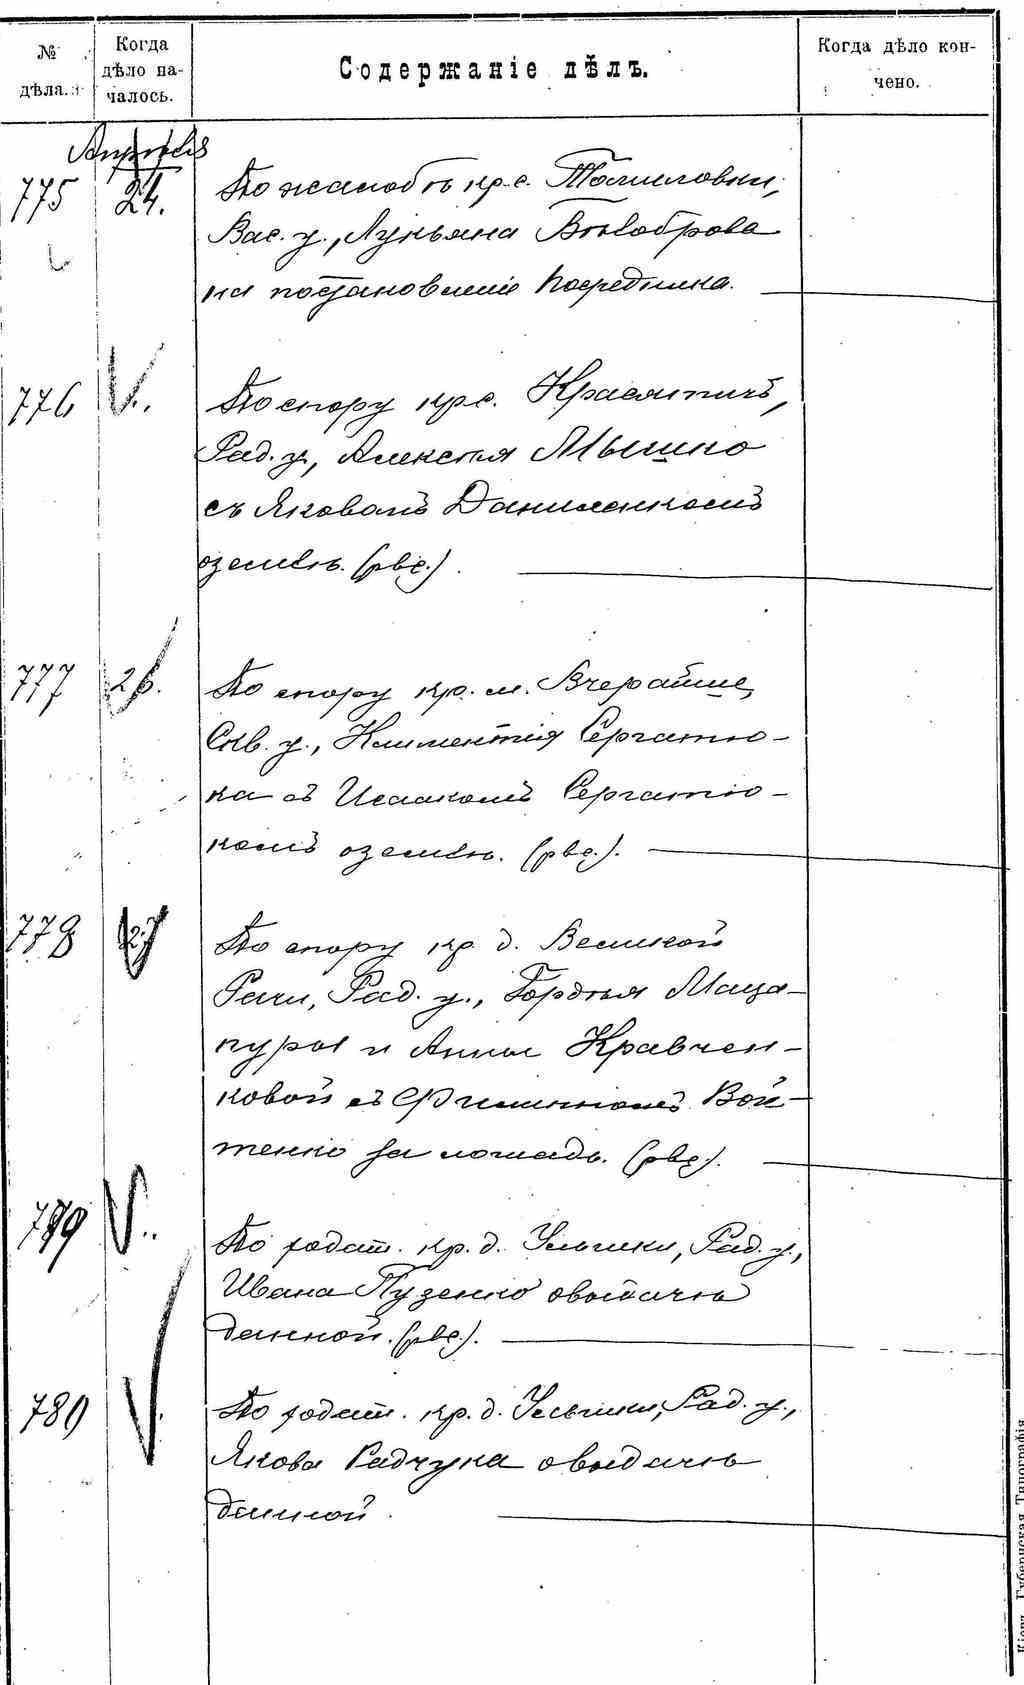 № дѣла.
Когда дѣло на-
чалось.
Содержаніе дѣлъ.
Когда дѣло кон-
чено.
Апрѣля
775 24. По жалобѣ кр. с. Томиловки,
Вас. у., Лукьяна Бѣлоброва
на постановленіе посредника.
776 По спору кр. с. Красятичъ,
Рад. у., Алексѣя Мышко
съ Яковомъ Даниленкомъ
о землѣ. (рвс.)
777 26. По спору кр. м. Вчерайше,
Скв. у., Климентія Сергатю-
ка съ Исаакомъ Сергатю-
комъ о землѣ. (рвс.).
778 27 По спору кр. д. Великой
Рачи, Рад. у., Гордѣя Маца-
пуры и Анны Кравчен-
ковой съ Филиппомъ Вой-
тенко за лошадь. (рвс.).
779 По ходат. кр. д. Ульшки, Рад. у.,
Ивана Пузенко о выдачѣ
данной. (рвс.).
780 По ходат. кр. д. Ульшки, Рад. у.,
Якова Радчука о выдачѣ
данной.
Кіевъ, Губернская Типографія